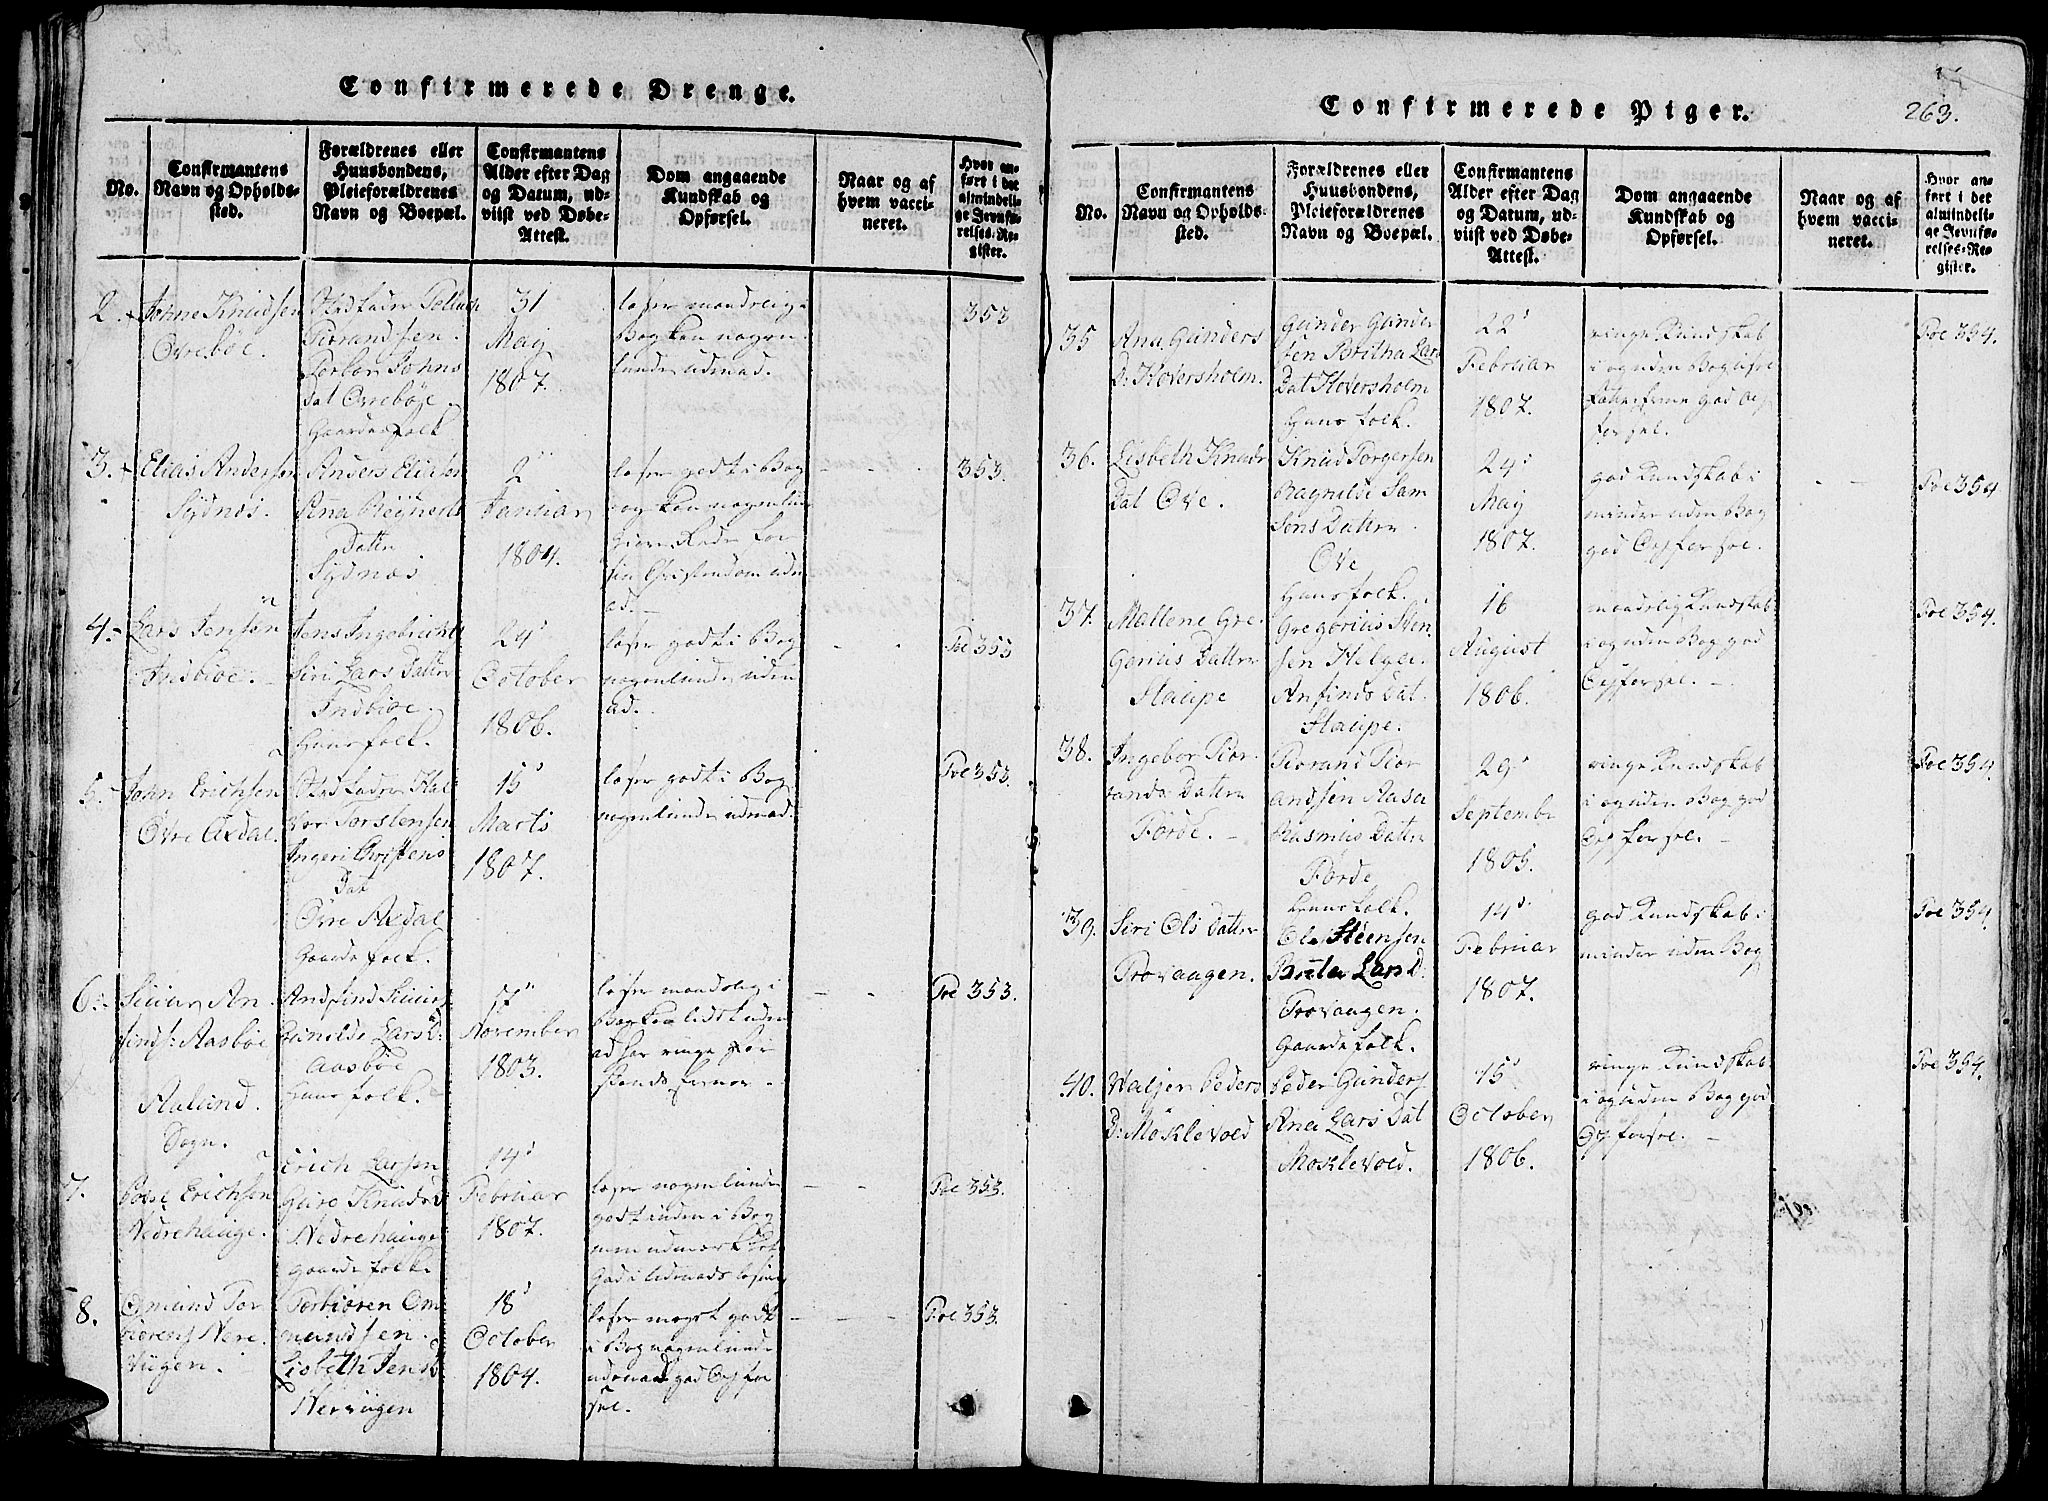 Confirmerede Drenge.
No.
Confirmantens
Navn og Opholds-
sted.
Forældrenes eller
Huusbondens,
Pleieforældrenes
Navn og Boepæl.
Confirmantens
Alder efter Dag
og Datum, ud-
viist ved Døbe-
Attest.
Dom angaaende
Kundskab og
Opførsel.
Naar og af
hvem vacci-
neret.
Hvor an-
ført i det
almindeli-
ge Jevnfø-
relses-Re-
gister.
2.
Johne Knudsen
Ovrebøe.
Stedfader
Tiorandsen.
Torbor Johns
Dat Ovrebøe.
Gaardes folk
31
Maij
1807.
læser maadelig i
Bog kan nogen-
lunde udenad.
353
3.
Elias Andersen
Sydnæs.
Anders Eliesen
Anna Reÿnerts
Datter
Sydnæs
2
Januar
1804.
læser godt i Bog
og kan nogenlun
giøre Rede for
sin Christendom uden
ad.
353.
4.
Lars Jensen
Indbioe.
Jens Ingebricts
Siri Lars Datter
Indbioe.
Huusfolk.
24
October
1806.
læser godt i Bog
nogenlunde uden
ad.
Poe 353
5.
John Erichsen
Øvre Axdal.
Stedfader Hal
vor Torstensen
Ingeri Christens
Dat
Øvre Axdal
Gaardefolk.
15
Marts
1807.
læser godt i Bog
nogenlunde udenad.
Poe 353.
6.
Siuur An
finds: Aasbøe
Aaland.
Sogn.
Andfind Siuurs
Gunilde Lars D:
Aasbøe
Huusfolk.
17
November
1803.
læser maadelig i
Bog kan lidt uden
ad har ringe For
stands Evner.
Poe 353.
7.
Povel Erichsen
Nedrehauge.
Erich Larsen
Guro Knudsd
Nedrehauge
Gaardefolk.
14
Februar
1807.
læser nogenlunde
godt inden i Bog
men udmærket
God i Udenads læsning
Poe 353.
8.
Omund Tor
biørens Nere
Vugen.
Torbiören Om
mundsen.
Lisbeth Jensd
Nerrugen
18
October
1804.
læser meget godt
i Bog nogenlunde
udenad god Opfør
sel.
Poe 353.
Confirmerede Piger.
263.
No.
Confirmantens
Navn og Opholds-
sted.
Forældrenes eller
Huusbondens,
Pleieforældrenes
Navn og Boepæl.
Confirmantens
Alder efter Dag
og Datum, ud-
viist ved Døbe-
Attest.
Dom angaaende
Kundskab og
Opførsel.
Naar og af
hvem vacci-
neret.
Hvor an-
ført i det
almindeli-
ge Jevnfø-
relses-Re-
gister.
35
Ana Gunders
D: Hoversholm.
Gunder Gunder
sen Britha Lars
Dat Hoversholm
Huusfolk.
22
Februar
1807.
ringe Kundskab
i og uden Bog
god Op
førsel.
Poe 354.
36.
Lisbeth Knuds
Dat Ove.
Knud Torgersen
Ragnilde Sam
sons Datter
Ove
Huusfolk.
24
Maij
1807.
god Kundskab i
mindre uden Bog
god Opførsel.
Poe 354
37.
Mallene Gre
gorius Datter
Staupe
Gregorius Sten
sen Helga
Anfinds Dat
Staupe.
16
August
1806.
maadelig Kundskab
i og uden Bog god
Opførsel.
Poe 354.
38.
Ingebor Tior
rands Datter
Førde.
Tiorand Tior
andsen Aasa
Rasmus Datter
Førde
Huusfolk.
29
September
1805.
ringe Kundskab
i og uden Bog god
Opførsel.
Poe 354.
39.
Siri Ols Datter
Trovaagen.
Ole Steensen
Brita Lars D.
Trovaagen.
Gaardefolk.
14
Februar
1807.
god Kundskab i
mindre uden Bog
Poe 354.
40.
Valjer Peders
D: Moklevold
Peder Gunders
Ana Lars Dat
Moklevold.
15
October
1806.
ringe Kundskab
i og uden Bog god
Opførsel.
Poe 354.